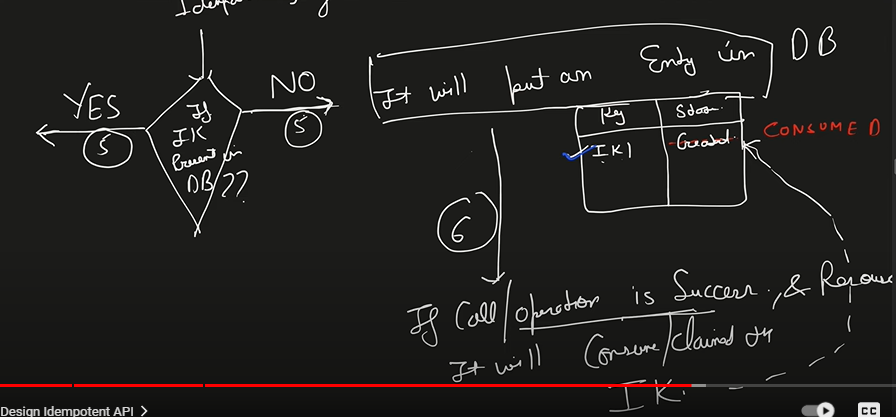 YES
5
NO
5
If
IK
Present in
DB ??
It will put an Entry in DB
Key
IK1
Created
CONSUMED
6
If Call/operation is Success, &
It will Consume/claimed the
IK.
Design Idempotent API >
CC